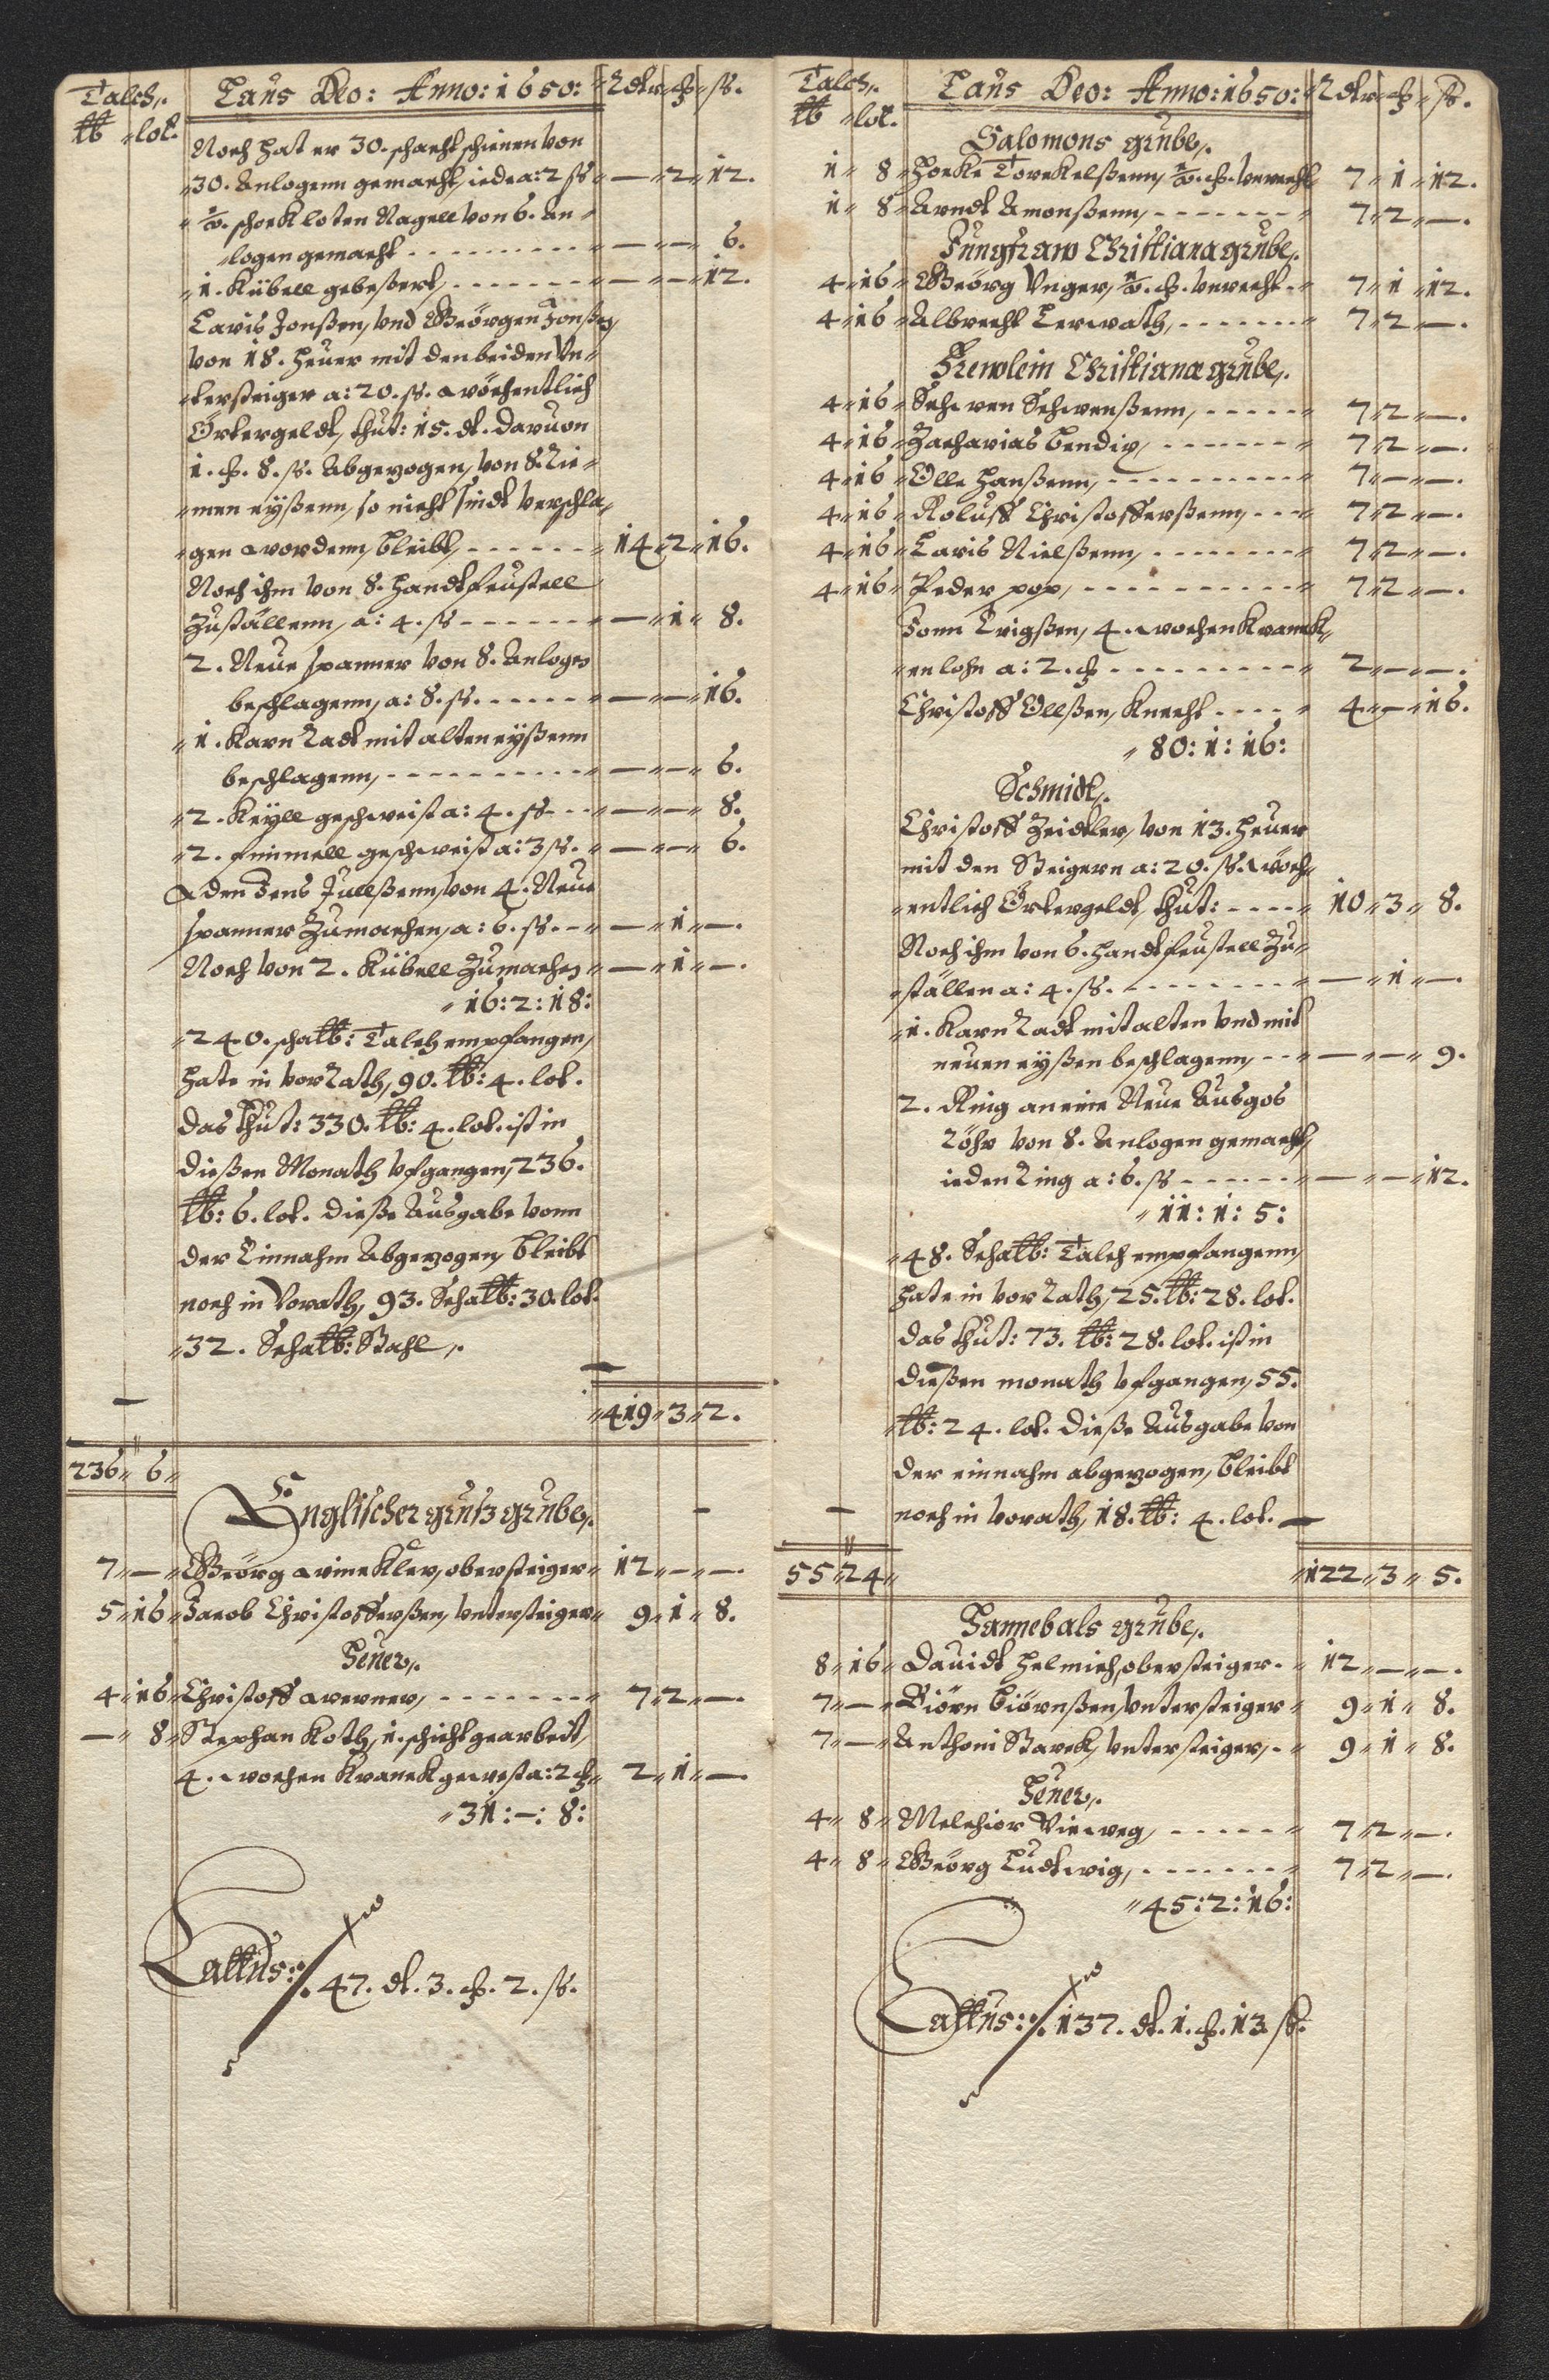 Talch,. Laus Deo: Anno: 1650: Rdlr ₰ ß.
℔ lot.
Noch hat er 30. schacht schienen von
30. Anlogenn gemacht, iede a: 2 ß — 2 12.
schock loten Nagell von 6. An-
logen gemacht — — 6.
1. Kübell gebeßert, — — 12.
Laris Jonßen, vnd Geörgen Jonßen
von 18. Heuer mit den beiden Vn-
tersteiger a: 20. ß. wöchentlich
Örtergeldt, thut: 15. dl. davuon
1. ₰. 8. ß. Abgezogen, von 8. Rie-
men eyßenn, so nicht sindt verschla-
gen wordenn, bleibt, 14 2 16.
Noch ihm von 8. handtfeustell
Zuställenn, a: 4. ß — 1 8.
2. Neue spanner von 8. Anlogen
beschlagenn, a: 8. ß. — — 16.
1. Karn Radt mit alten eyßenn
beschlagenn, — — 6.
2. Keyll geschweist a: 4. ß — — 8.
2. fimmell geschweist a: 3 ß. — — 6.
Jens Juelßenn, von 4. Neue
spanner Zumachen, a: 6. ß. — 1 —.
Noch von 2. Kübell Zumachen — 1 —.
16: 2: 18:
240. scha℔: Talch empfangen,
hate in vorRath, 90. ℔: 4. lot.
das thut: 330. ℔: 4. lot. ist in
dießen Monath vfgangen, 236.
℔: 6. lot. dieße Ausgabe vonn
der Einnahm Abgezogen, bleibt
noch in Vorath, 93. Scha℔: 30. lot.
32. Scha℔: Stahl,.
419 3 2.
236 6
Englischer grutz grube,.
7 — Geörg winckler, obersteiger 12 — —.
5 16 Jacob Christofferßen, vntersteiger 9 1 8.
Heuer,.
4 16 Christoff werner, 7 2 —.
— 8 Stephan Koth, 1. schicht gearbeit,
4. wochen Kranck gewest a: 2 ₰ 2 1 —.
31: —: 8:
Lattus: 47. dl. 3. ₰. 2. ß.
Talch,. Laus Deo: Anno: 1650: Rdlr ₰ ß.
℔ lot.
Salomons grube,.
1 8 Hocke Torckelßenn, ₰. verecht 7 1 12.
1 8 Arndt Amonßenn, 7 2 —.
Jungfraw Christiana grube,.
4 16 Geörg Vnger, ₰. verecht 7 1 12.
4 16 Albrecht Lerwath, 7 2 —.
Frewlein Christiana grube,.
4 16 Schwen Schwenßenn, 7 2 —.
4 16 Zacharias bendix, 7 2 —.
4 16 Olle Hanßenn, 7 — —.
4 16 Roluff Christofferßenn, 7 2 —.
4 16 Laris Nielßenn, 7 2 —.
4 16 Peder pop, 7 2 —.
Jonn Erigßen, 4. wochen Kranck-
en lohn a: 2. ₰ 2 — —.
Christoff Ollßen, Knecht 4 — 16.
80: 1: 16:
Schmidt,.
Christoff Zeidtler, von 13. Heuer
mit den Steigern a: 20. ß. wöch-
entlich Örtergeldt, thut: 10 3 8.
Noch ihm von 6. handtfeustell Zu-
ställen a: 4. ß. — 1 —.
1. Karn Radt mit alten vnd mit
neuen eyßen beschlagenn, — — 9.
2. Ring an eine Neue Ausgos
Röhr von 8. Anlogen gemacht,
ieden Ring a: 6. ß — — 12.
11: 1: 5:
48. Scha℔: Talch empfangenn,
hate in vorRath, 25. ℔: 28. lot.
das thut: 73. ℔: 28. lot. ist in
dießen monath vfgangen, 55.
℔: 24. lot. dieße Ausgabe von
der einnahm abgezogen, bleibt
noch in vorath, 18. ℔: 4. lot.
55 24 122 3 5.
Hannebals grube,.
8 16 Dauidt Helmich, obersteiger. 12 — —.
7 — Biörn Biörnßen, vntersteiger 9 1 8.
7 — Anthoni Starck, vntersteiger, 9 1 8.
Heuer,.
4 8 Melchior Vieweg, 7 2 —.
4 8 Geörg Ludtwig, 7 2 —.
45: 2: 16:
Lattus: 137. dl. 1. ₰. 13 ß.